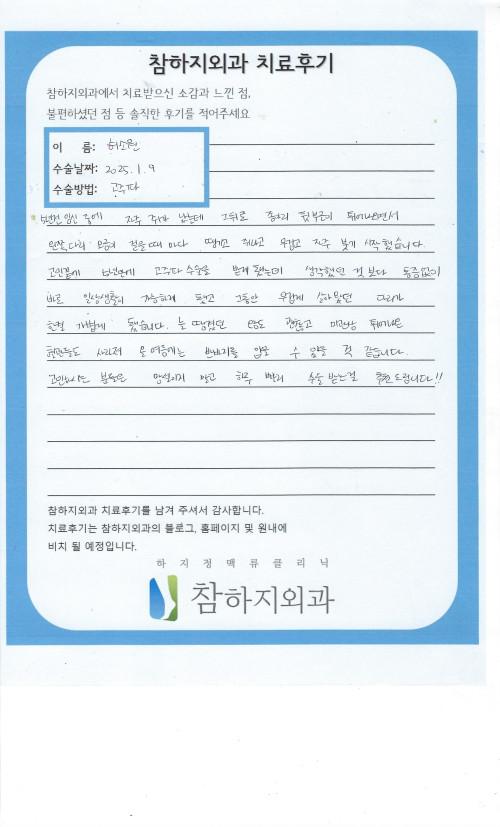 참하지외과 치료후기
참하지외과에서 치료받으신 소감과 느낀 점,
불편하셨던 점 등 솔직한 후기를 적어주세요
이 름: 허소원
수술날짜: 2025. 1. 9
수술방법: 고주파
임신 중에 자주 쥐가 났는데 그뒤로 종아리 뒷부분이 튀어나오면서
왼쪽 다리 오금이 걸을때 마다 땡기고 저리고 무겁고 자주 붓기 시작했습니다.
고민끝에 고주파 수술을 받게 됐는데 생각했던 것 보다 통증없이
바로 일상생활이 가능하게 됐고 그동안 무겁게 살아왔던 다리가
한결 가볍게 됐습니다. 늘 땡겼던 괜찮고 미관상 튀어나온
혈관들도 사라져 올 여름에는 반바지를 입을 수 있을 것 같습니다.
고민하시는 분들은 망설이지 말고 하루 빨리 수술 받는걸 추천드립니다!!
참하지외과 치료후기를 남겨 주셔서 감사합니다.
치료후기는 참하지외과의 블로그, 홈페이지 및 원내에
비치 될 예정입니다.
하지정맥류클리닉
참하지외과